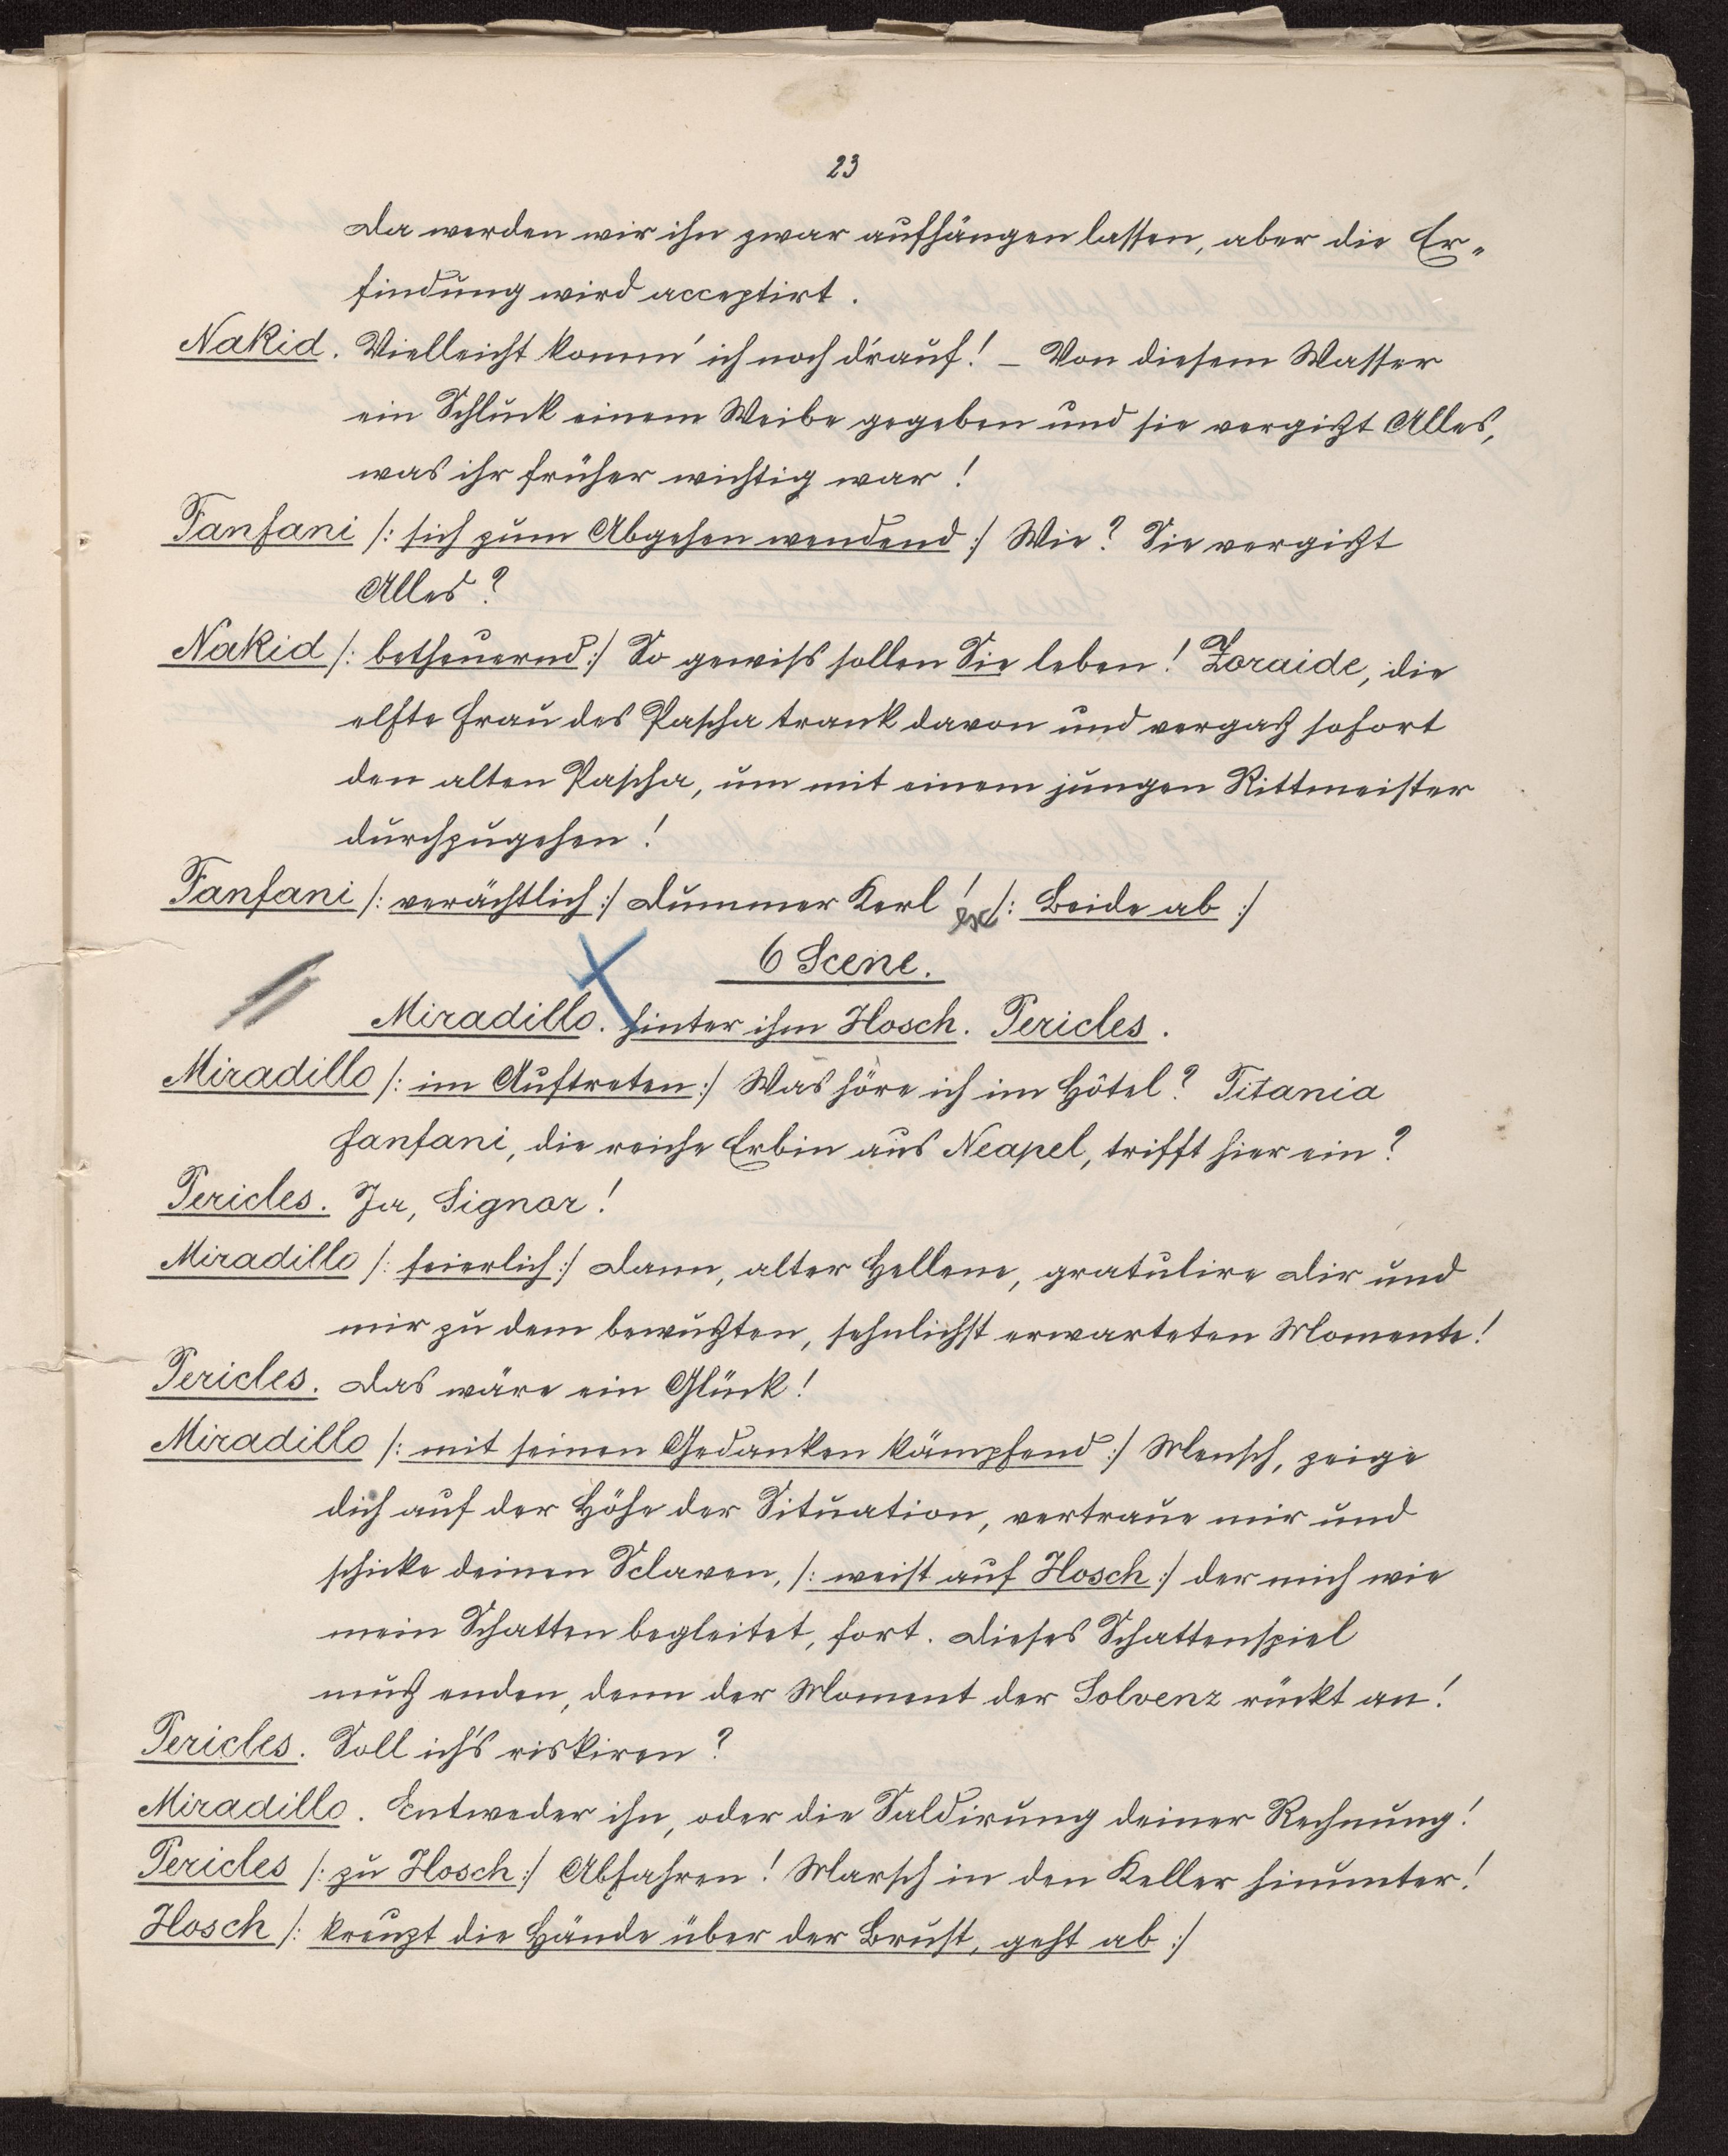 23
Da werden wir ihn zwar aufhängen lassen, aber die Er-
findung wird acceptirt.
Nakid. Vielleicht komm' ich noch d'rauf! – Von diesem Wasser
ein Schluck einem Weibe gegeben und sie vergißt Alles,
was ihr früher wichtig war!
Fanfani /: sich zum Abgehen wendend :/ Wie? Sie vergißt
Alles?
Nakid /: betheuernd :/ So gewiss sollen Sie leben! Zoraide, die
elfte Frau des Pascha trank davon und vergaß sofort
den alten Pascha, um mit einem jungen Rittmeister
durchzugehen!
Fanfani /: verächtlich :/ Dummer Kerl! /: Beide ab :/
6 Scene.
Miradillo. hinter ihm Hosch. Pericles.
Miradillo /: im Auftreten :/ Was höre ich im Hôtel? Titania
Fanfani, die reiche Erbin aus Neapel, trifft hier ein?
Pericles. Ja, Signor!
Miradillo /: feierlich :/ Dann, alter Hellene, gratulire Dir und
mir zu dem bewußten, sehnlichst erwarteten Momente!
Pericles. Das wäre ein Glück!
Miradillo /: mit seinen Gedanken kämpfend :/ Mensch, zeige
dich auf der Höhe der Situation, vertraue mir und
schicke deinen Sclaven, /: weist auf Hosch :/ der mich wie
mein Schatten begleitet, fort. Dieses Schattenspiel
muß enden, denn der Moment der Solvenz rückt an!
Pericles. Soll ich's riskiren?
Miradillo. Entweder ihn, oder die Saldirung deiner Rechnung!
Pericles /: zu Hosch :/ Abfahren! Marsch in den Keller hinunter!
Hosch /: kreuzt die Hände über der Brust, geht ab :/